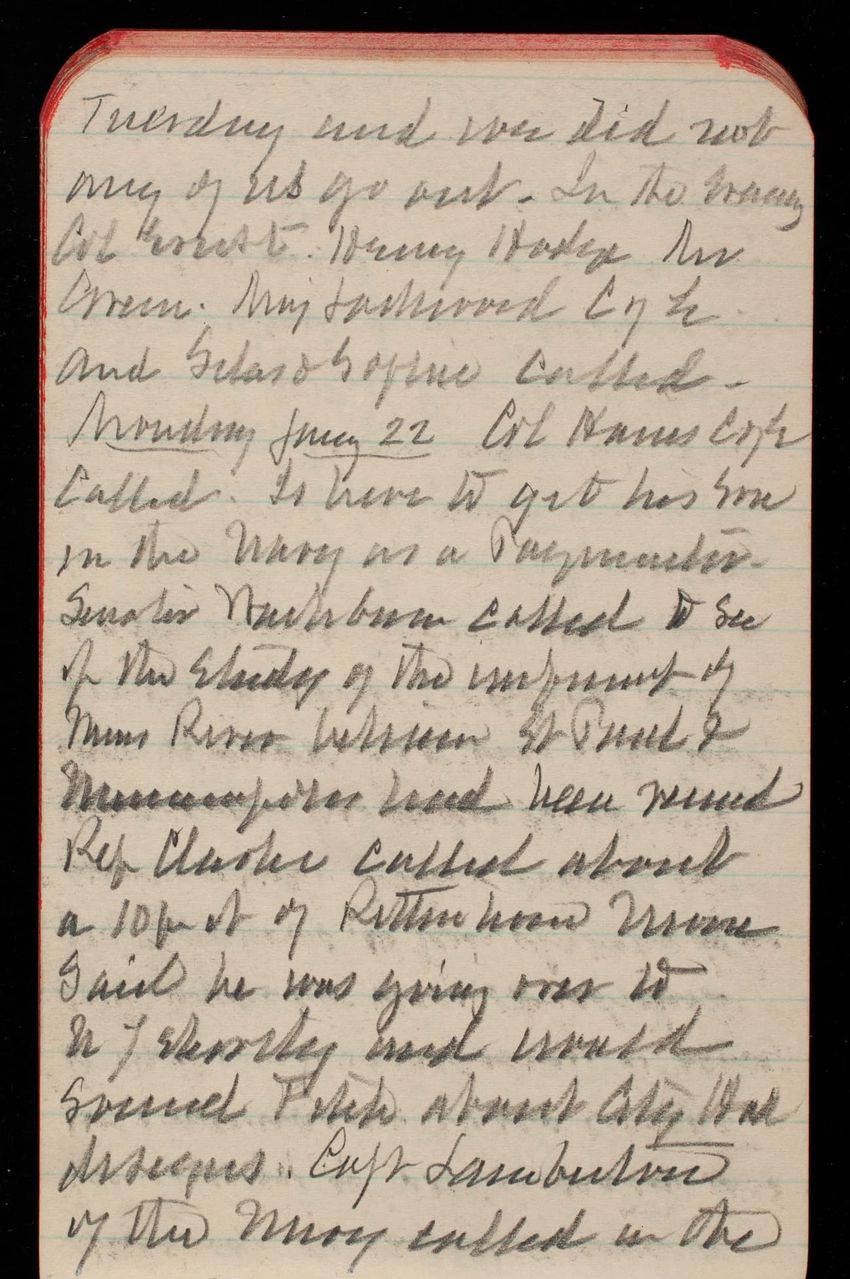 Tuesday and we did not
any of us go out. In the Evening
Col Ernst. Henry Hodge Mr
Green. Maj Lockwood C of E
and Selas & Sophie called.
Monday Jany 22 Col Hains C of E
called. Is here to get his Son
in the Navy as a Paymaster.
Senator Washburn called to see
if the Study of the impmnt of
Miss River between St Paul &
Minneapolis had been renewed
Rep Clarke called about
a 10 of Rittenhouse Moore
Said he was going over to
N Y shortly and would
Sound about City Hall
designs. Capt Lamberton
of the Navy called in the